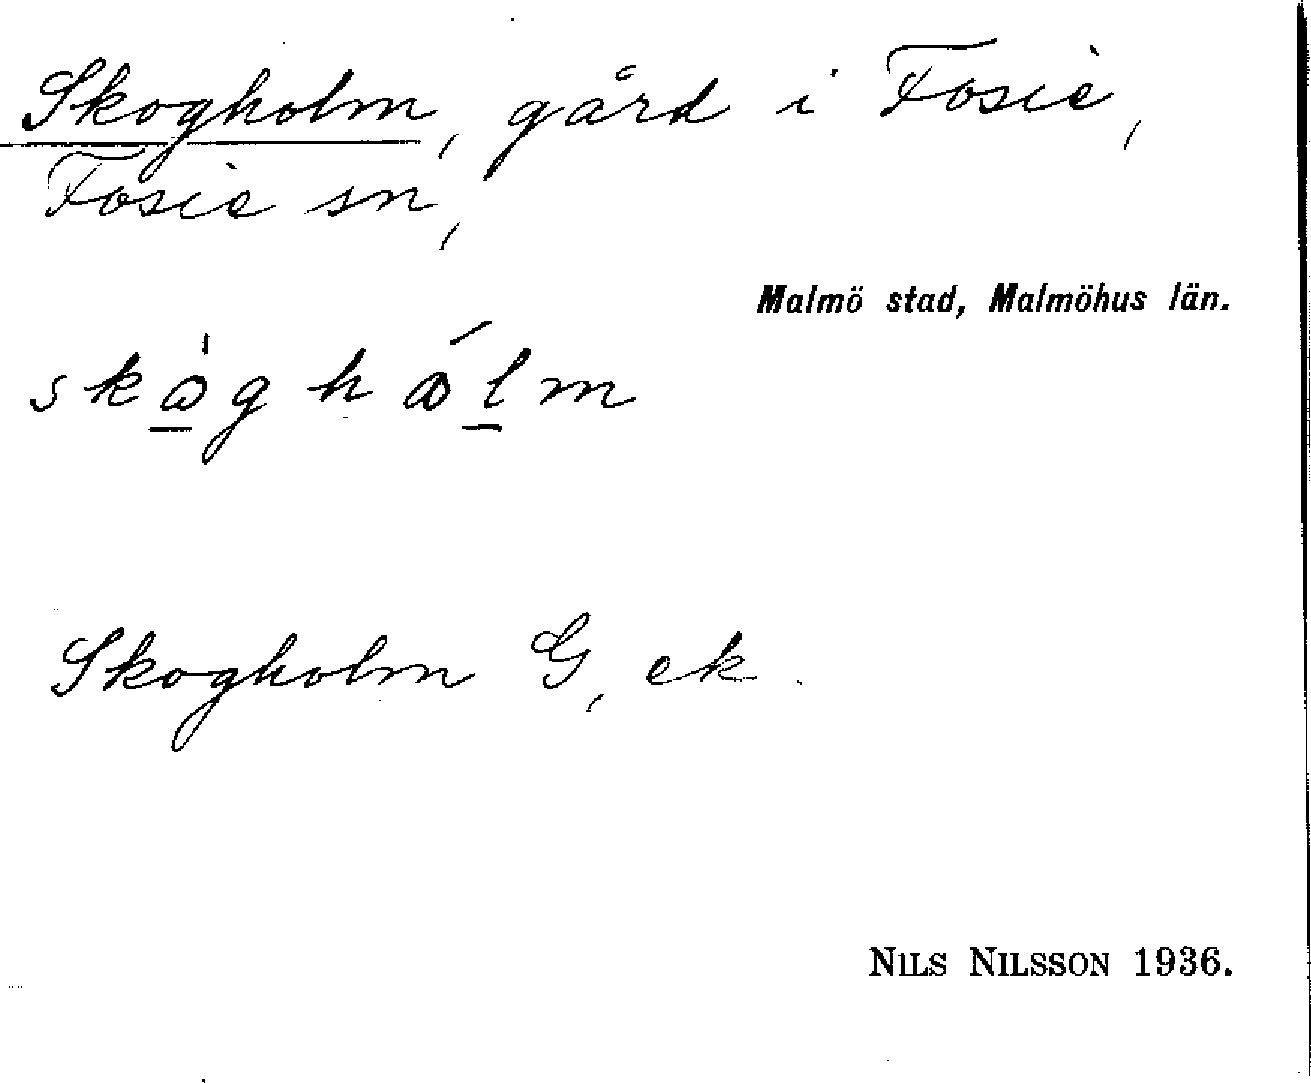 Skogholm, gård i Fosie,
Fosie sn,
Malmö stad, Malmöhus län.
skɷ̲̀gh ɷ́l̲m
Skogholm G, ek.
NILS NILSSON 1936.